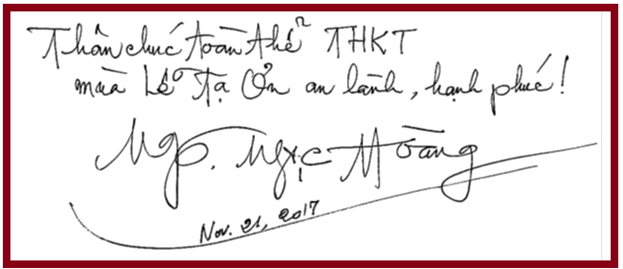 Thân chúc toàn thể THKT
mùa Lễ Tạ Ơn an lành, hạnh phúc!
Ngp. Ngọc Hoàng
Nov. 21, 2017